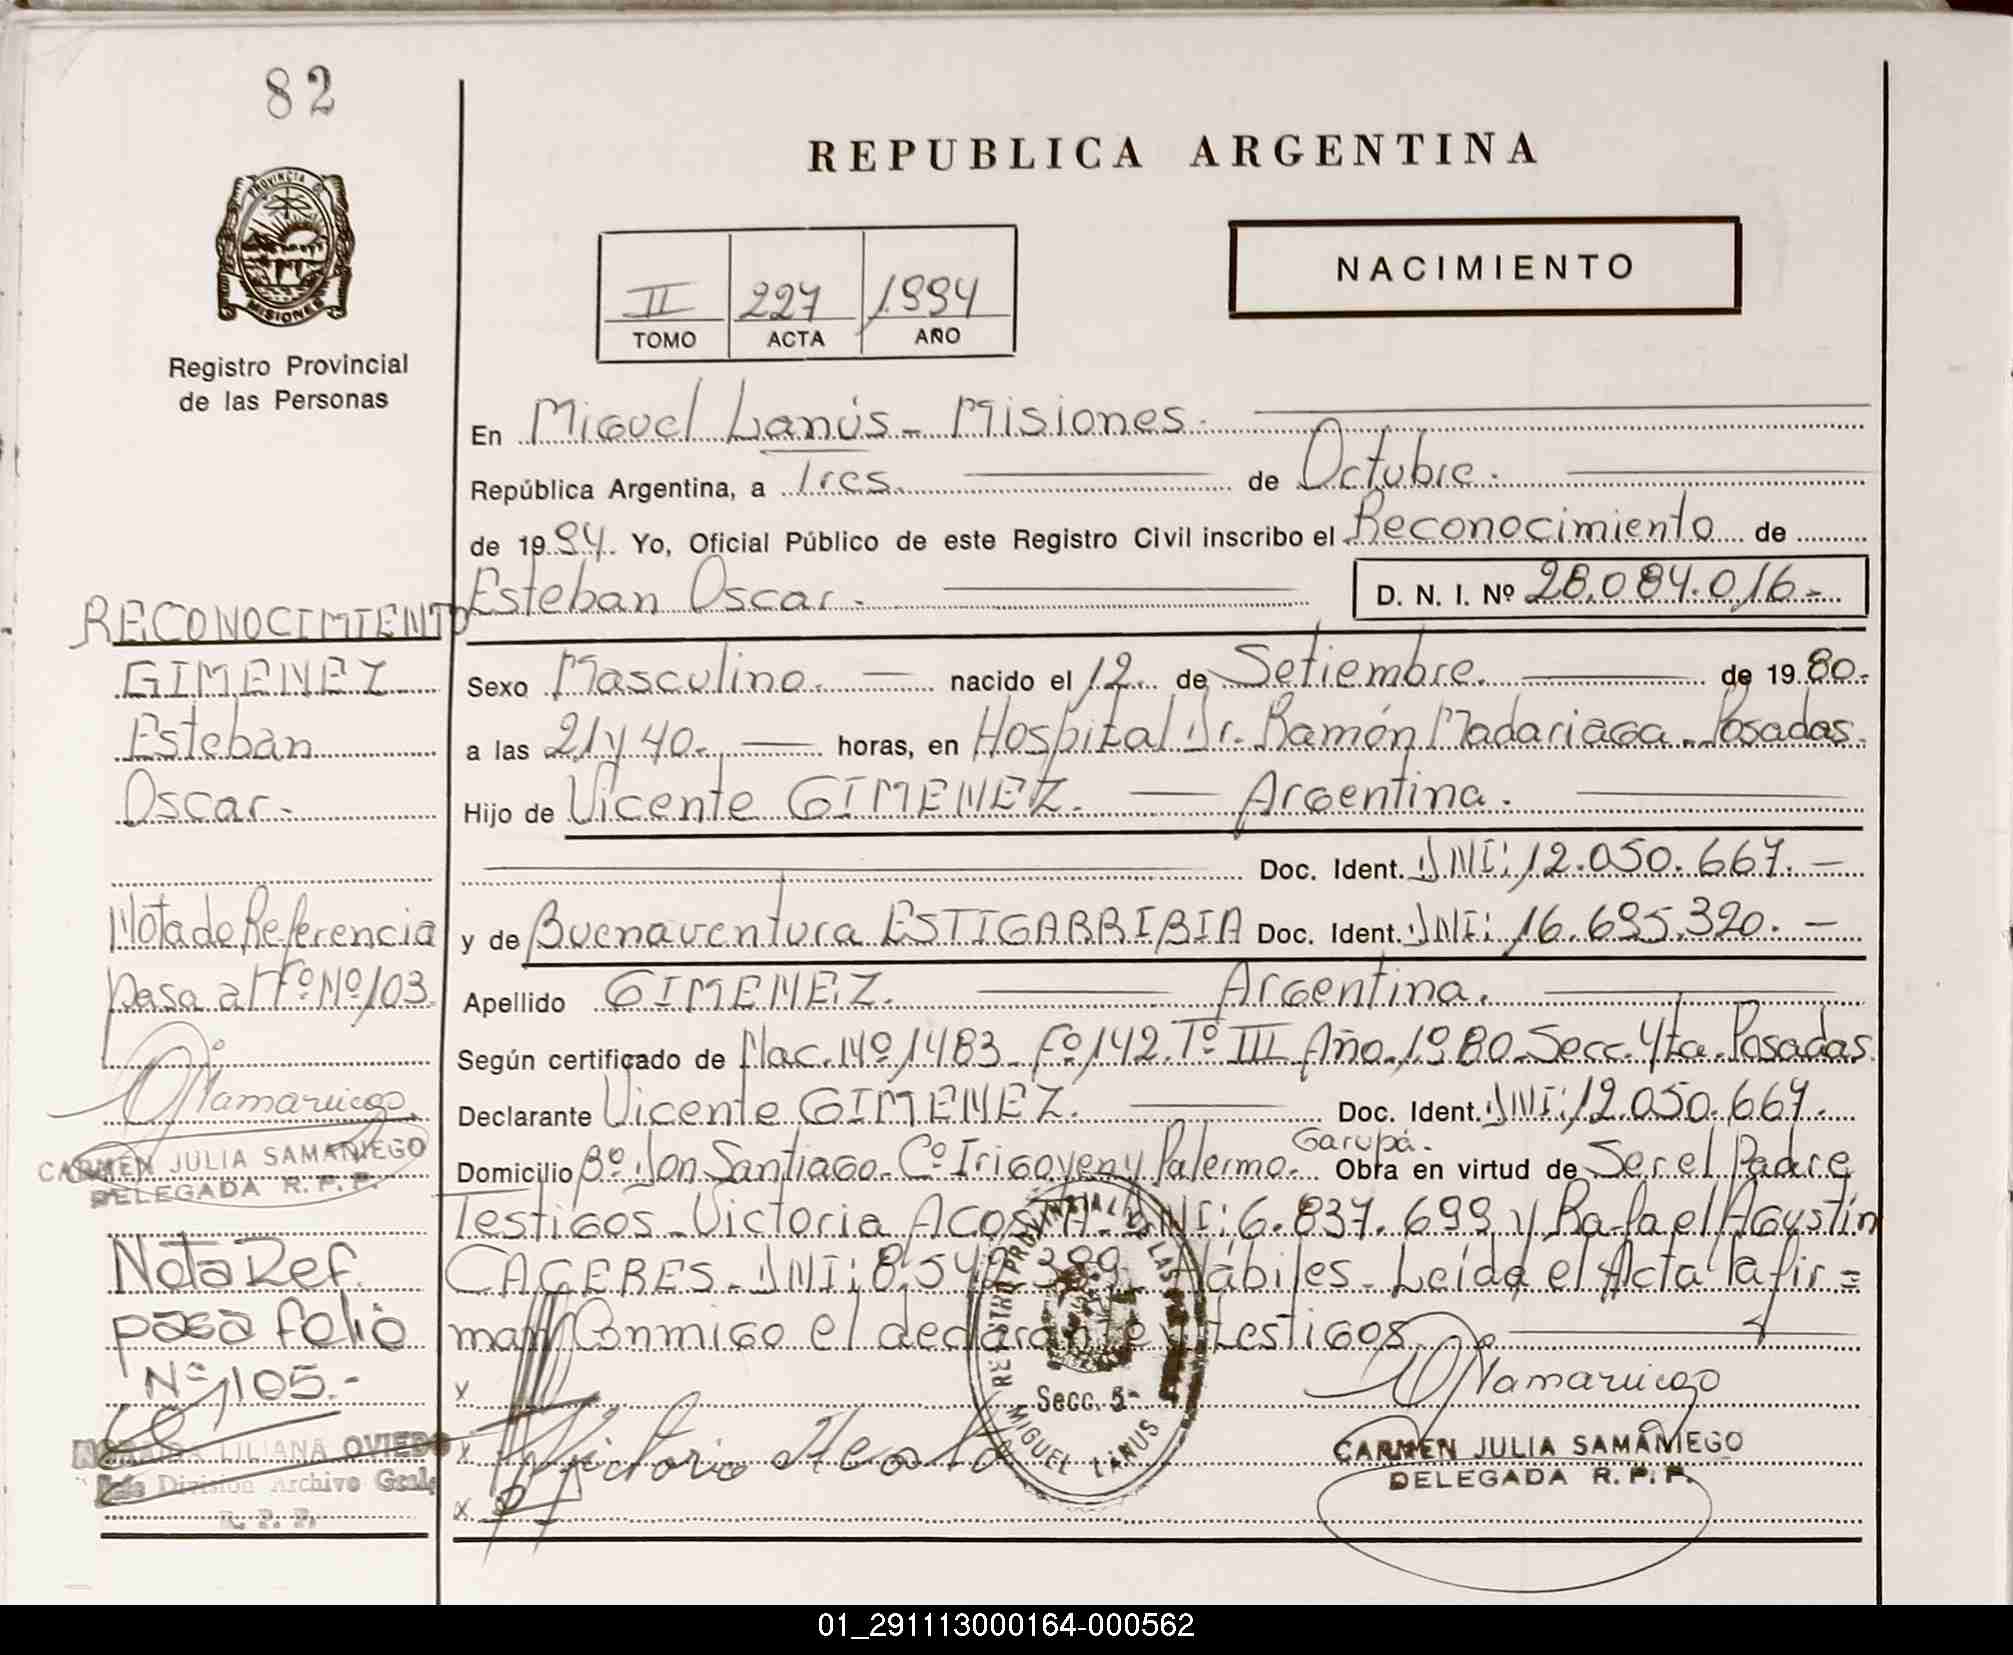 82
REPUBLICA ARGENTINA
PROVINCIA DE
MISIONES
Registro Provincial
de las Personas
II 227 1.994
TOMO ACTA AÑO
NACIMIENTO
En Miguel Lanús - Misiones.
República Argentina, a Tres. de Octubre.
de 1994. Yo, Oficial Público de este Registro Civil inscribo el Reconocimiento de
Esteban Oscar. D. N. I. Nº 28.084.016.-
Sexo Masculino. nacido el 12 de Setiembre. de 1980.-
a las 21 y 40. horas, en Hospital Dr. Ramón Madariaga - Posadas.
Hijo de Vicente GIMENEZ. Argentina.
Doc. Ident. DNI: 12.050.667.-
y de Buenaventura ESTIGARRIBIA Doc. Ident. DNI: 16.695.320.-
Apellido GIMENEZ. Argentina.
Según certificado de Nac. Nº 1483 - Fº 142. Tº III Año 1980 - Secc. 4ta. Posadas.
Declarante Vicente GIMENEZ. Doc. Ident. DNI: 12.050.667.
Domicilio Bº Don Santiago - Cº Irigoyen y Palermo - Garupá. Obra en virtud de Ser el Padre
Testigos - Victoria ACOSTA - DNI: 6.837.699 y Rafael Agustín
CACERES - DNI: 8.54 .389 - Hábiles - Leída el Acta la fir=
man Conmigo el declarante y testigos
x
x Victoria Acosta
x
REGISTRO PROVINCIAL DE LAS
Secc. 5ª
MIGUEL LANUS
CARMEN JULIA SAMANIEGO
DELEGADA R. P. P.
RECONOCIMIENTO
GIMENEZ
Esteban
Oscar.-
Nota de Referencia
pasa al Fº Nº 103.
CARMEN JULIA SAMANIEGO
DELEGADA R. P. P.
Nota Ref.
pasa folio
Nº 105.-
LILIANA OVIEDO
División Archivo Gral.
R. P. P.
01_291113000164-000562